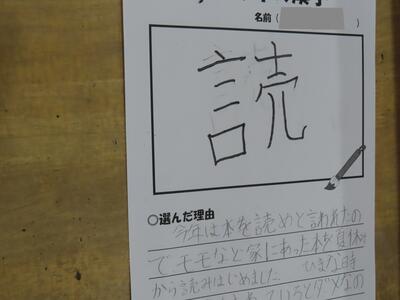 名前（
読
○選んだ理由
今年は本を読めと言われたの
でモモなど家にあった本
から読みはじめました ひまな時